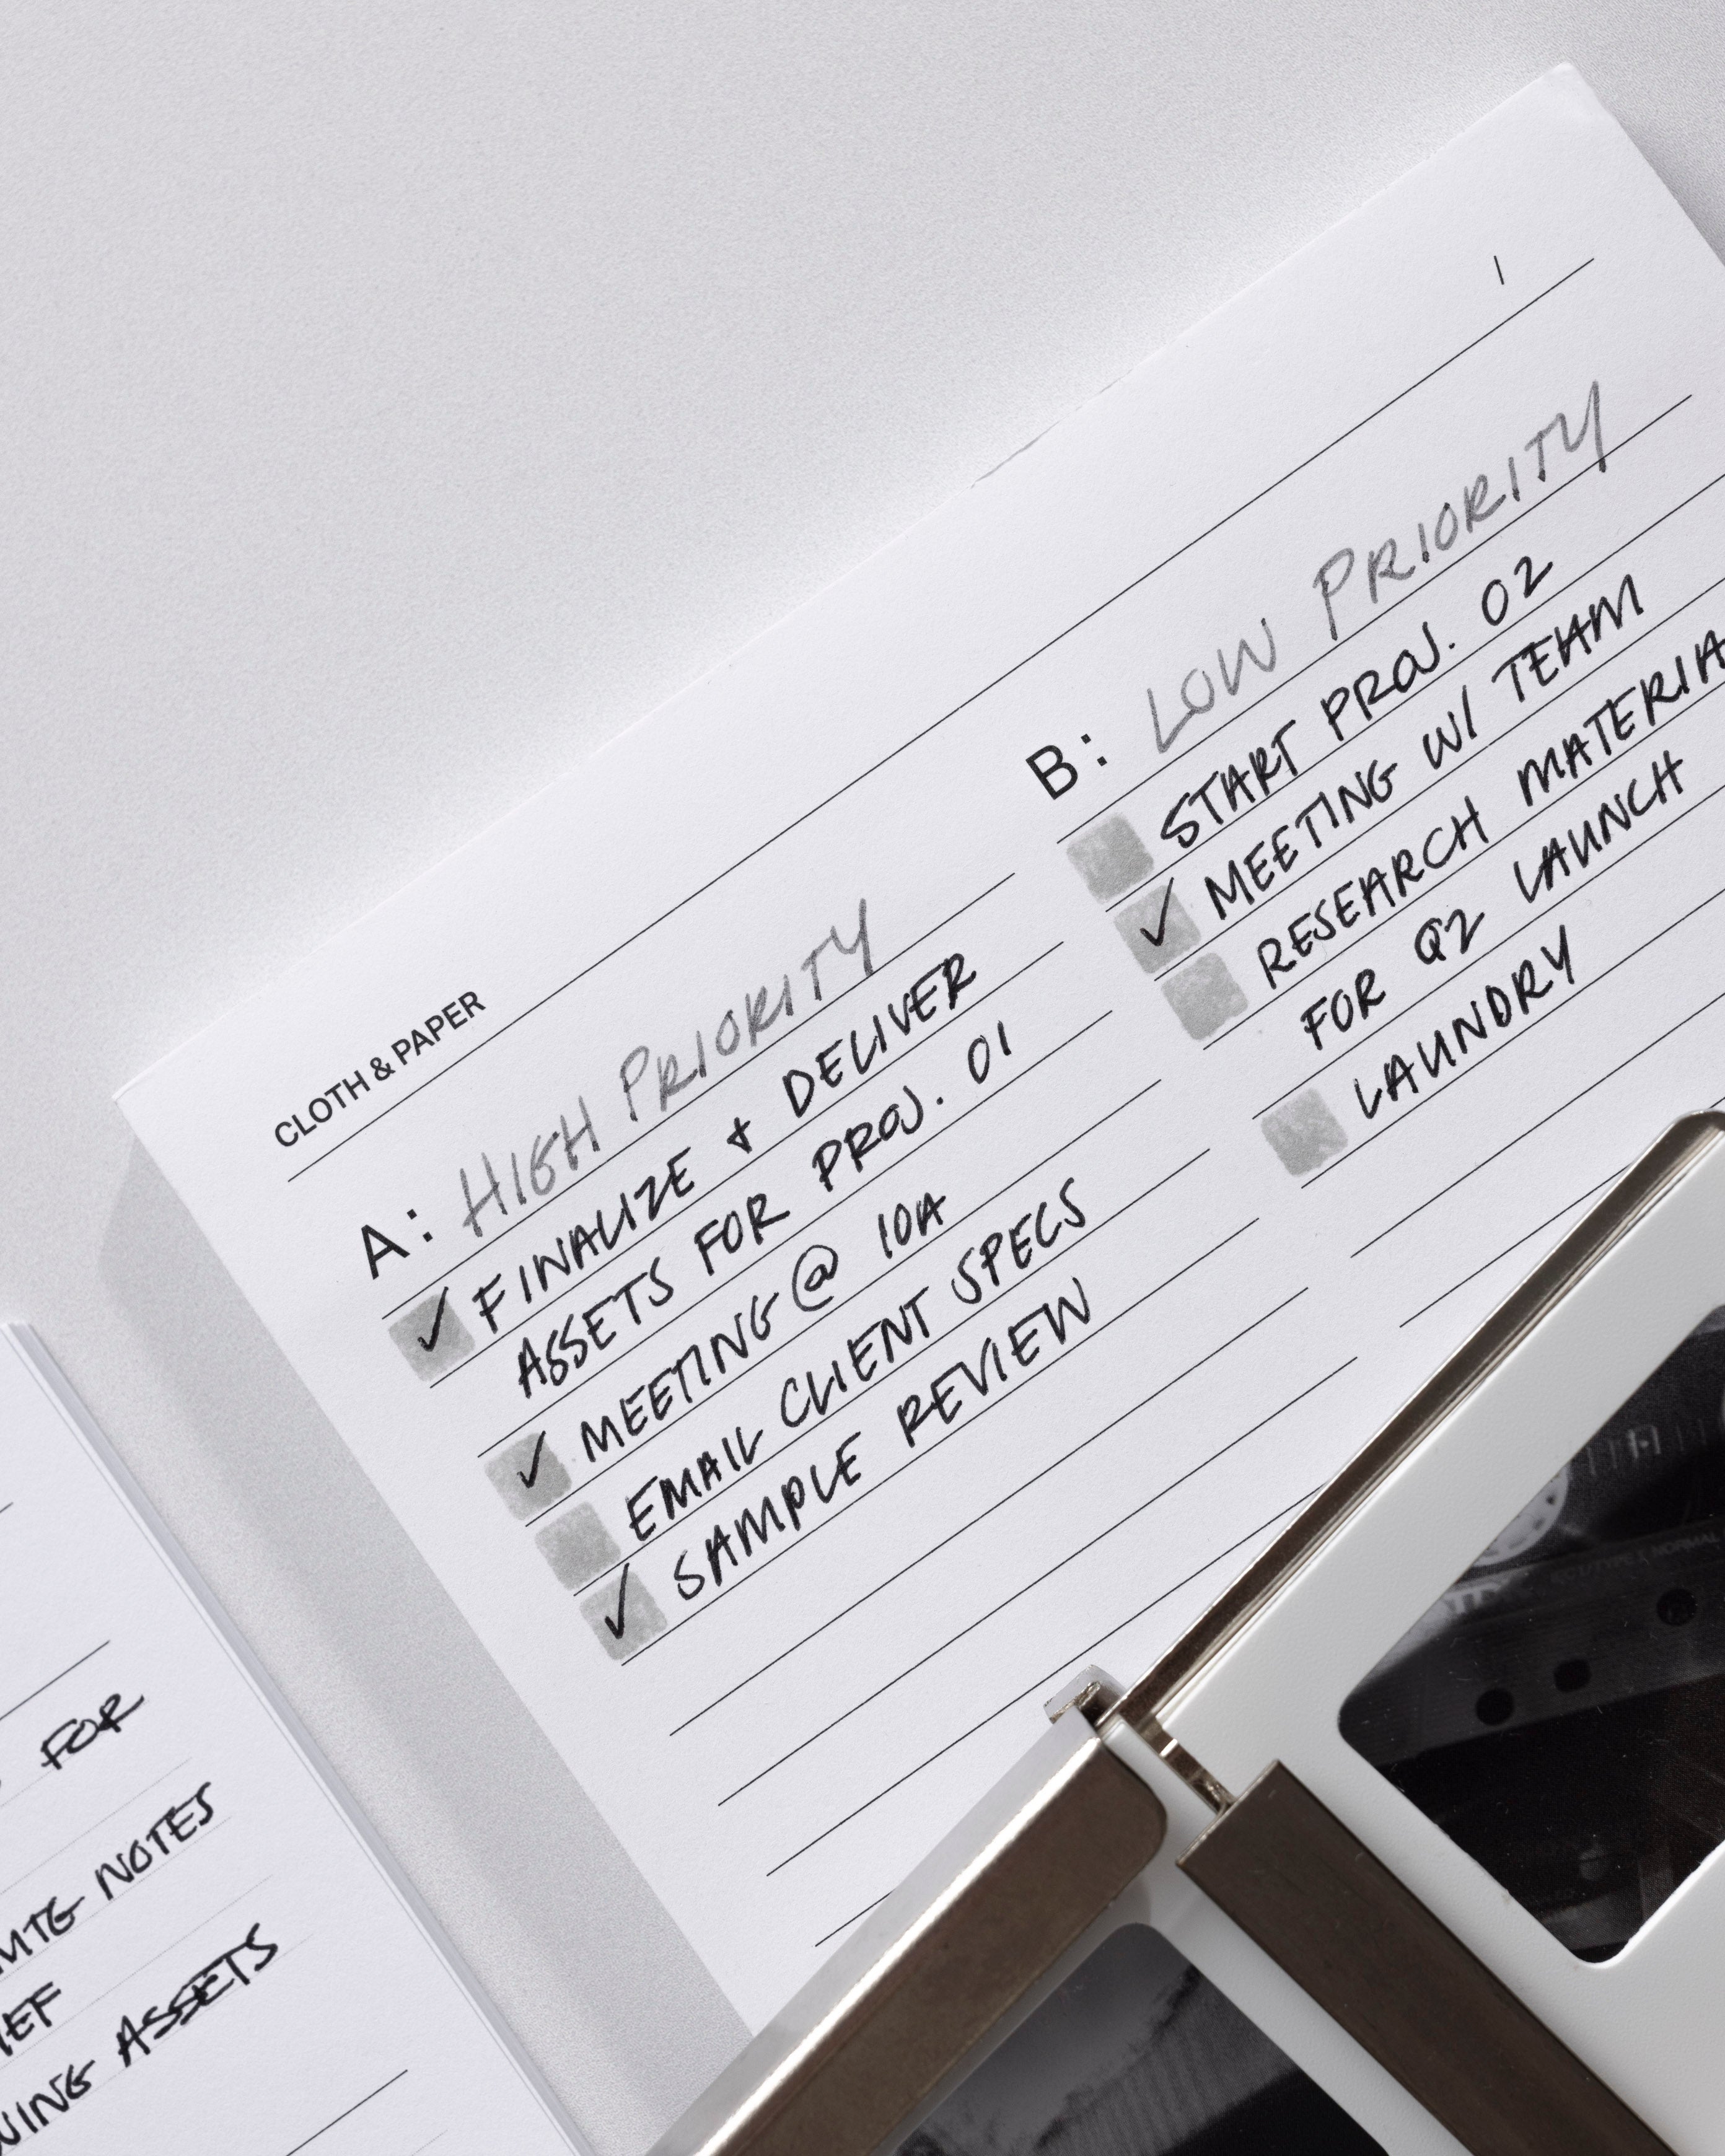 CLOTH & PAPER
A: HIGH PRIORITY
✓ FINALIZE + DELIVER
ASSETS FOR PROJ. 01
✓ MEETING @ 10A
EMAIL CLIENT SPECS
✓ SAMPLE REVIEW
B: LOW PRIORITY
START PROJ. 02
✓ MEETING W/ TEAM
RESEARCH
FOR Q2 LAUNCH
LAUNDRY
FOR
MTG NOTES
ASSETS